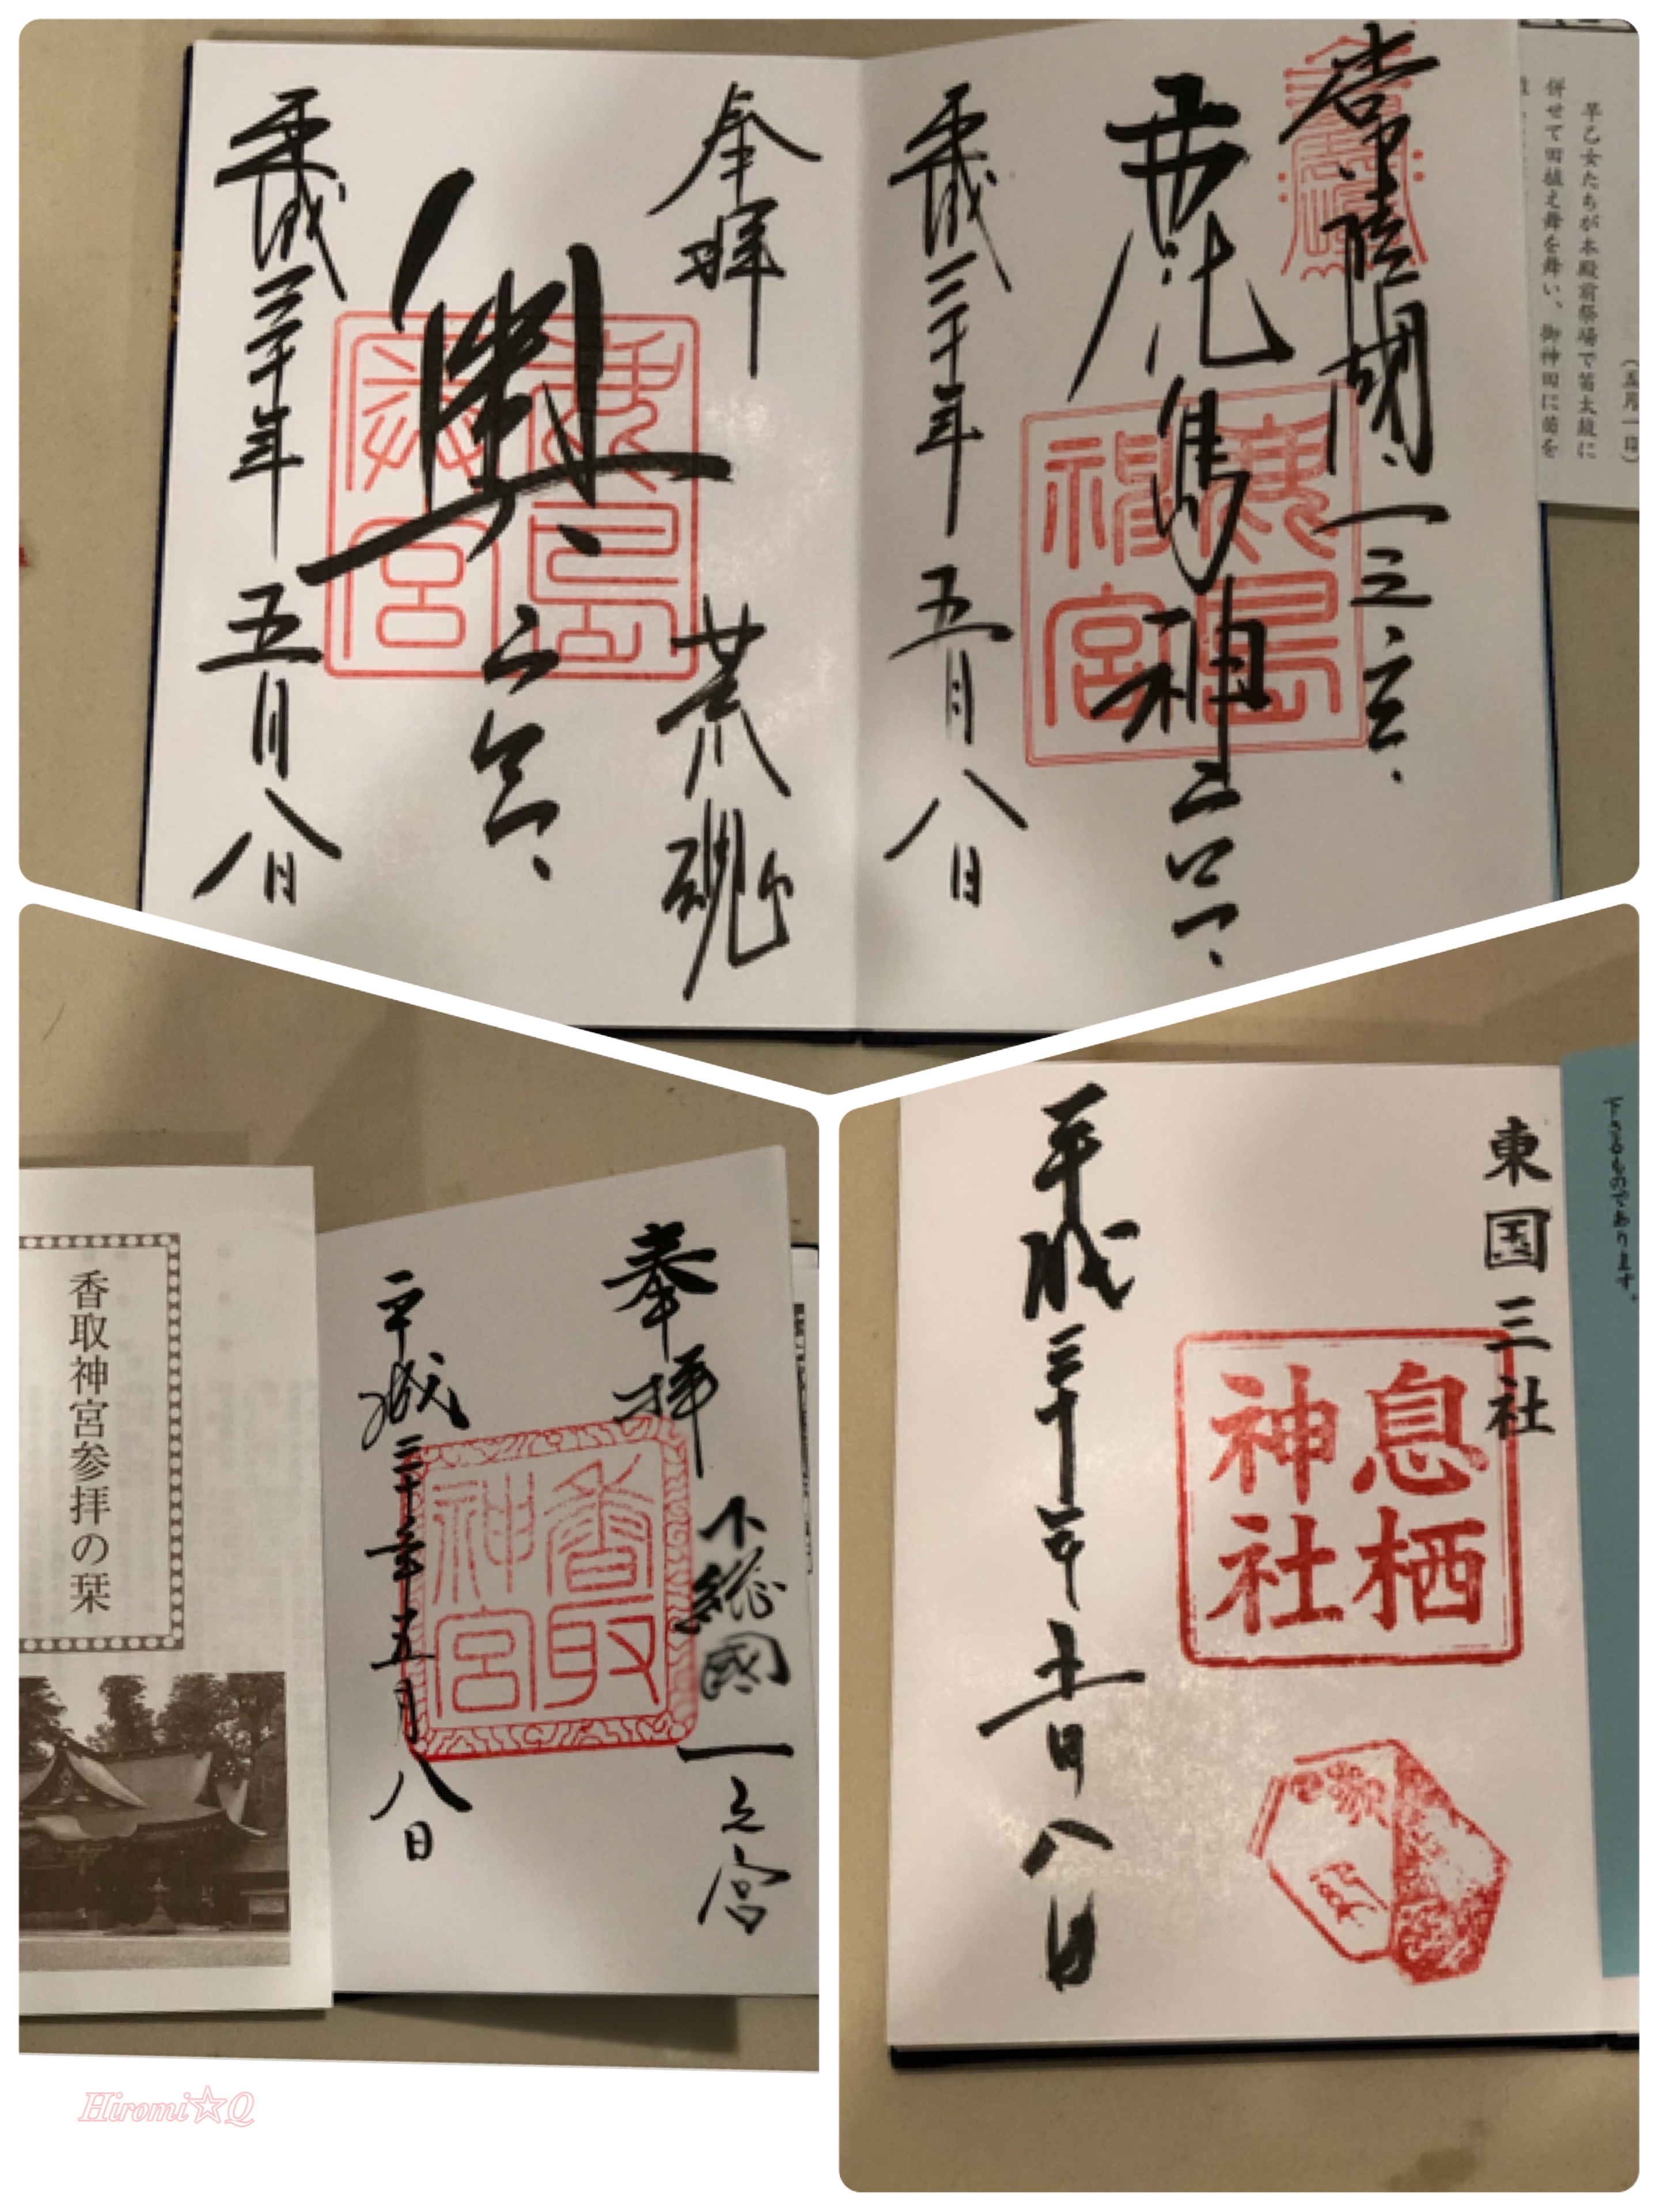 早乙女たちが本殿前祭場で笛太鼓に
併せて田植え舞を舞い、御神田に苗を
常陸國一之宮
鹿島神宮
鹿島神宮
平成三十年五月八日
奉拝
荒魂
奥宮
鹿島
平成三十年五月八日
香取神宮参拝の栞
奉拝
下総國一之宮
香取神宮
平成三十年五月八日
下さるものであります。
東国三社
息栖神社
平成三十年五月八日
Hiromi☆Q